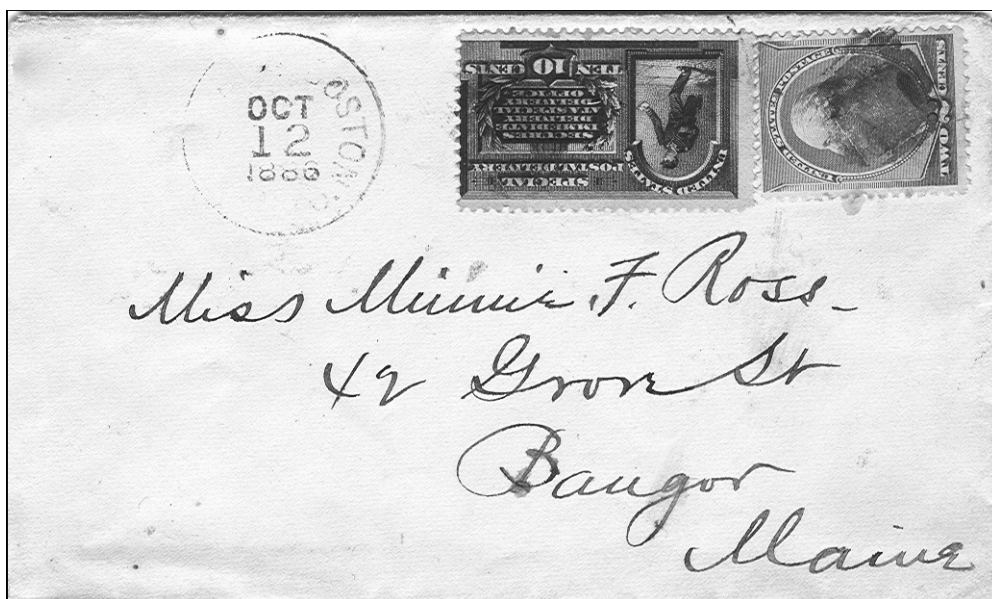 OSTON
OCT
12
1886
UNITED STATES
SPECIAL
POSTAL DELIVERY
SECURES
IMMEDIATE
DELIVERY
AT A SPECIAL
DELIVERY
OFFICE
TEN 10 CENTS
UNITED STATES POSTAGE
Miss Minnie F. Ross
42 Grove St
Bangor
Maine